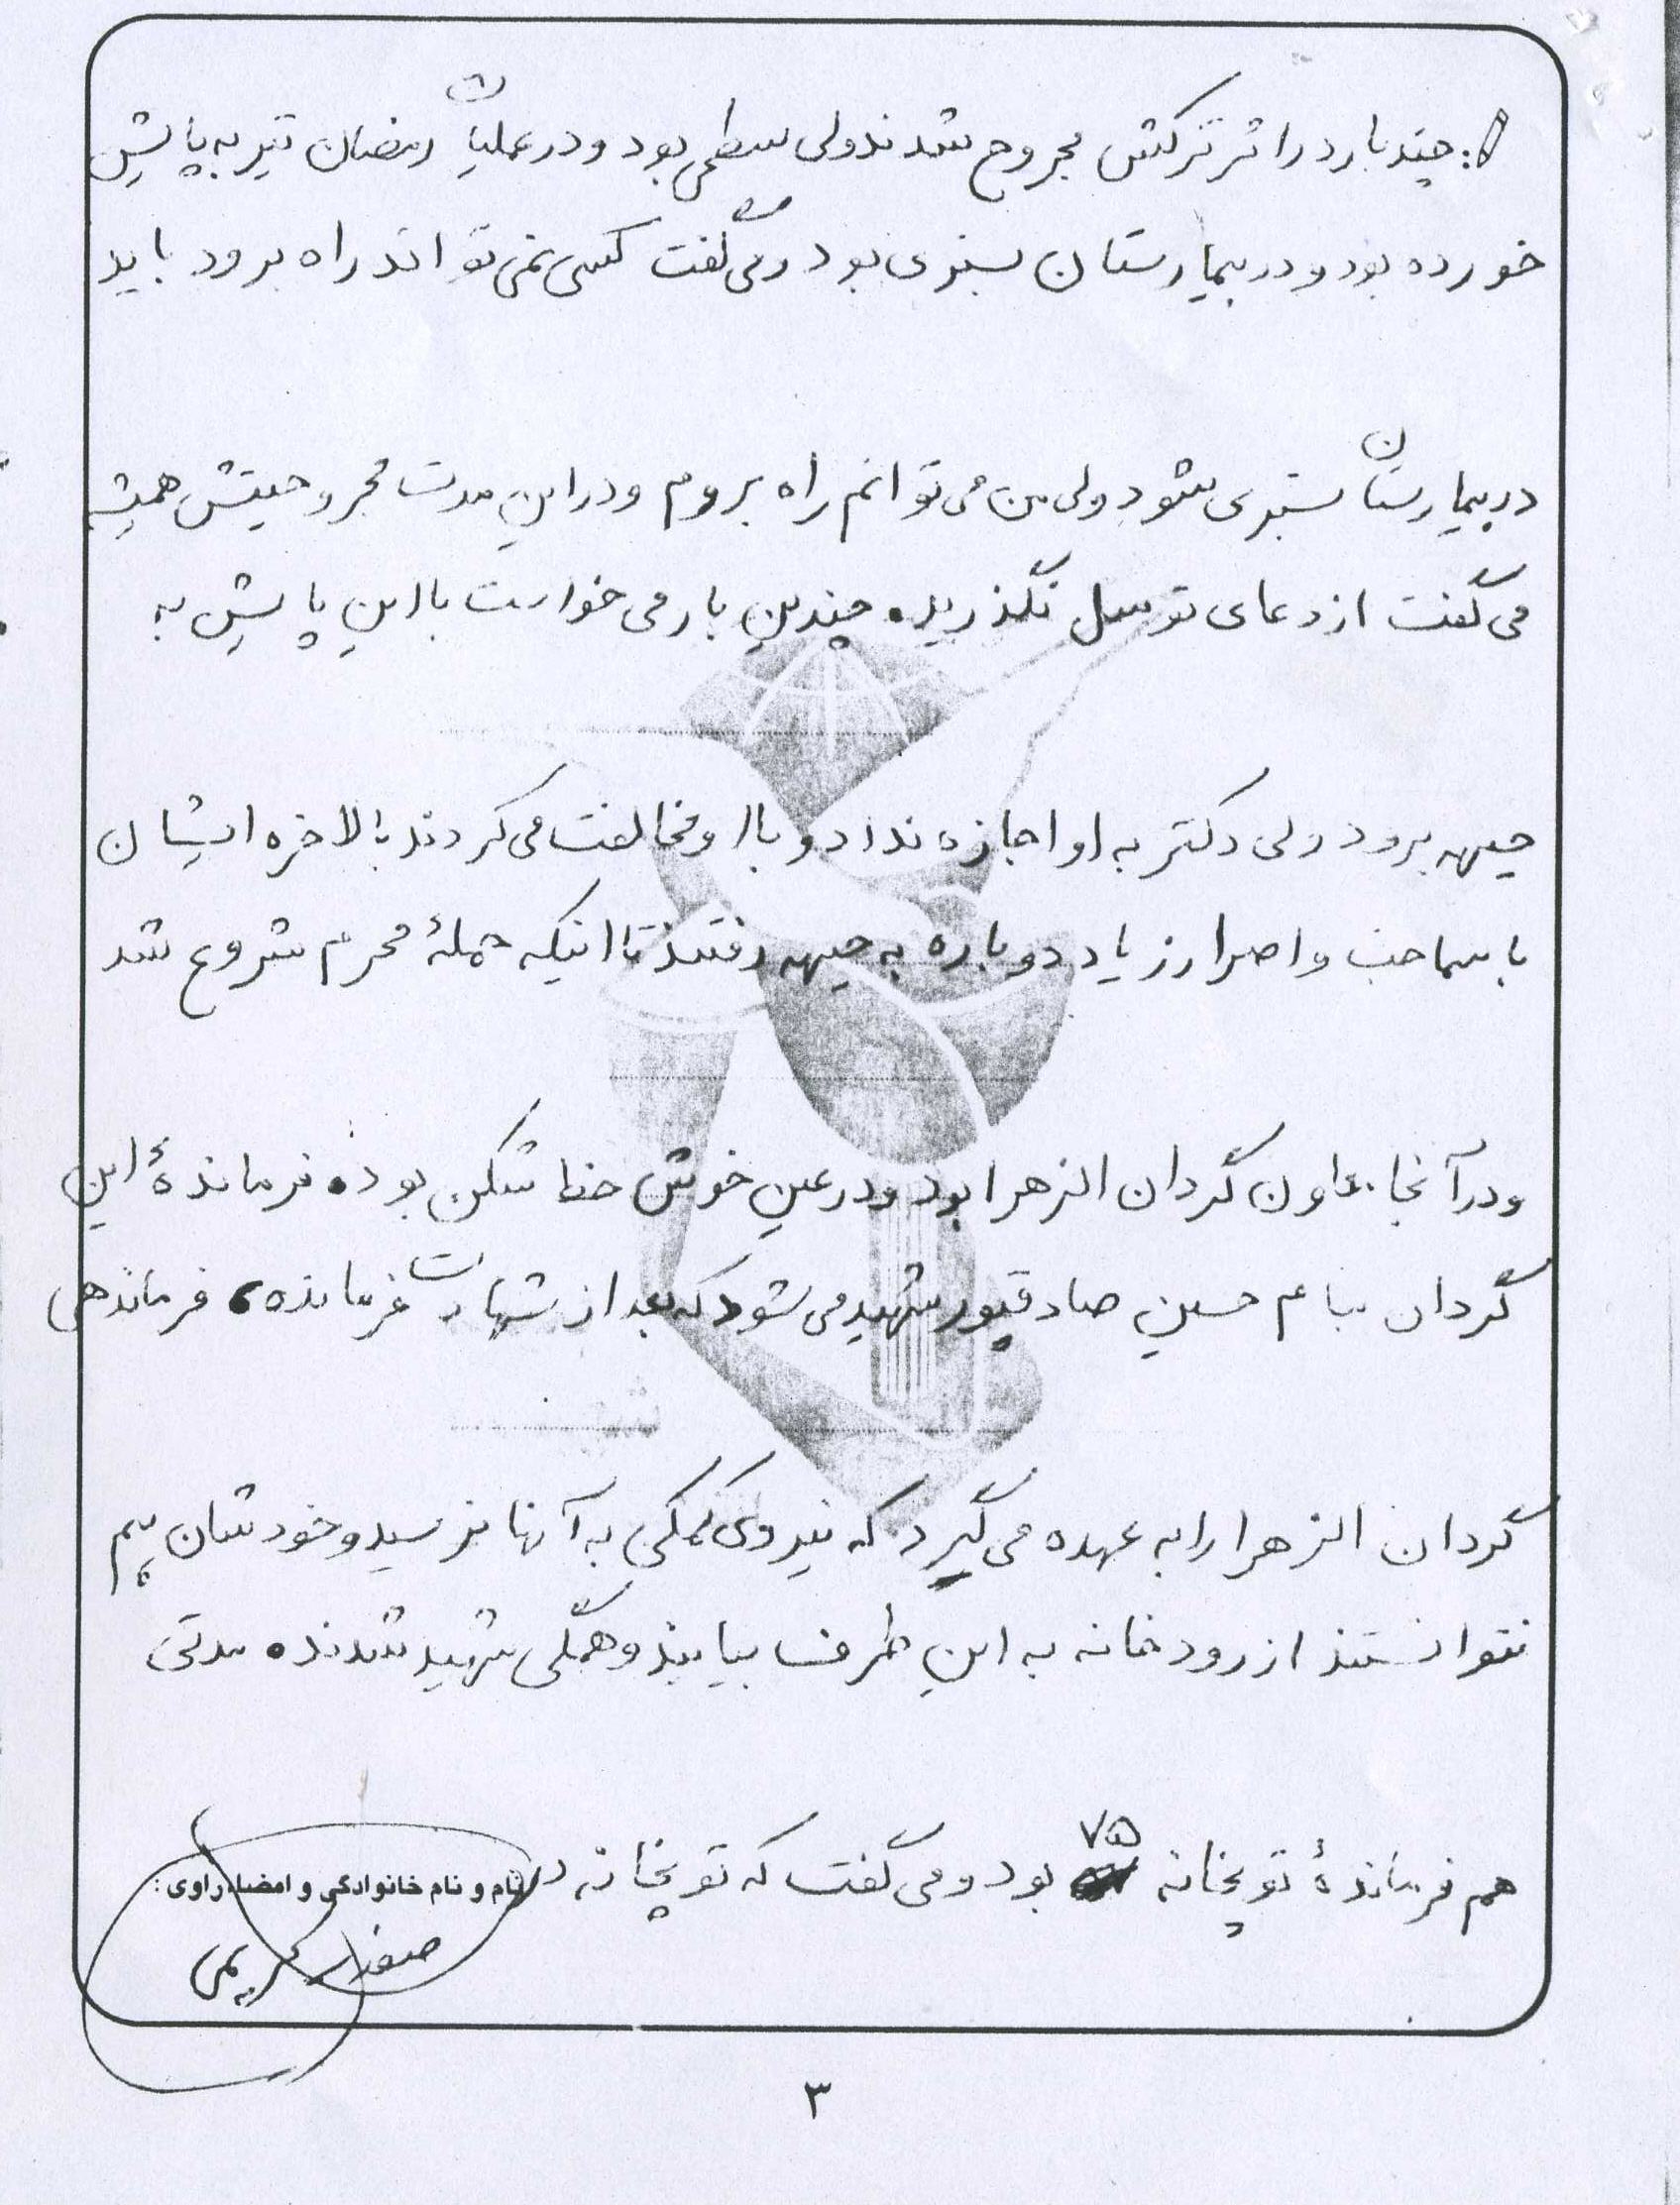 ج: چند بار در اثر ترکش مجروح شدند ولی سطحی بود و در عملیات رمضان تیر به پایش
خورده بود و در بیمارستان بستری بود و می گفت کسی نمی تواند راه برود باید
در بیمارستان بستری شود ولی من می توانم راه بروم و در این مدت مجروحیتش همیشه
می گفت از دعای توسل نگذرید. چندین بار می خواست با این پایش به
جبهه برود ولی دکتر به او اجازه نداد و با او مخالفت می کردند بالاخره ایشان
با سماجت و اصرار زیاد دوباره به جبهه رفتند تا اینکه حملهٔ محرم شروع شد
و در آنجا معاون گردان الزهرا بود و در عین خوش خط شکن بود. فرماندهٔ این
گردان بنام حسین صادقپور شهید می شود که بعد از شهادت فرمانده، فرماندهی
گردان الزهرا را به عهده می گیرد که نیروی کمکی به آنها نرسید و خودشان هم
نتوانستند از رودخانه به این طرف بیایند و همگی شهید شدند. مدتی
هم فرماندهٔ توپخانه ۷۵ بود و می گفت که توپخانه در
نام و نام خانوادگی و امضاء راوی:
صفدر کریمی
۳